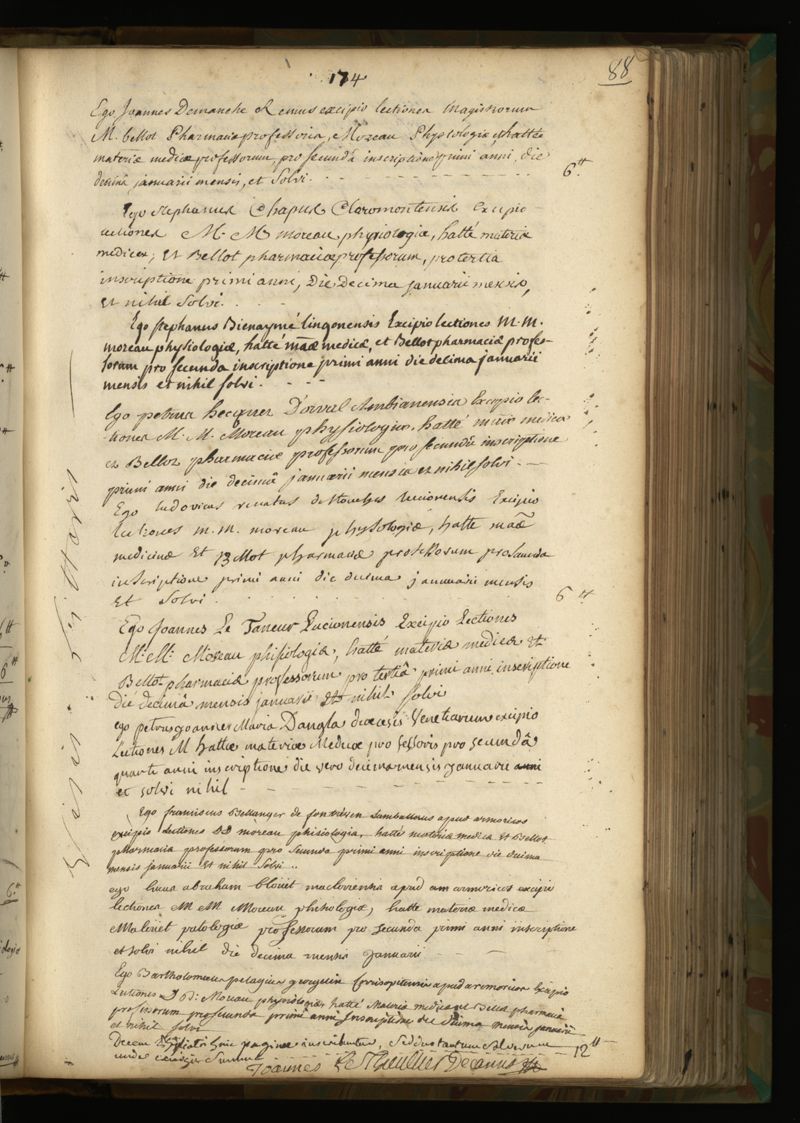 174
88
Ego Joannes Demanche Remus excipio lectiones Magistrorum
M. bellot Pharmaciæ professoris, Moreau Physiologiæ, hatté
materiæ medicæ professorum, pro secundâ inscriptione primi anni, die
decimâ januarii mensis, et Solvi. 6tt
Ego stephanus Chapus Claromontensis Excipio
lectiones M. M moreau physiologiæ, hatté materiæ
medicæ, Et Bellot pharmaciæ professorum, pro tertia
inscriptione primi anni, Die Decima januarii mensis,
Et nihil Solvi.
Ego stephanus Bienaymé lingonensis Excipio lectiones M. M.
moreau physiologiæ, hatté maæ medicæ, et Bellot pharmaciæ profes-
sorum pro secunda inscriptione primi anni die decima januarii
mensis et nihil solvi.
Ego petrus hecquet D'orval Ambianensis Excipio lec-
tiones M. M. Moreau physiologiæ, hatté medicæ
et Bellot pharmaciæ professorum pro secundâ inscriptione
primi anni die decimâ januarii mensis et nihil solvi.
Ego ludovicus renatus Excipio
lectiones m. m. moreau physologiæ, hatte maæ
medicinæ Et Bellot pharmaciæ professorum pro secunda
inscriptione primi anni die decima januarii mensis
Et Solvi. 6tt
Ego Joannes Le Taneur Lucionensis Excipio Lectiones
M. M. Moreau phisiologiæ, hatté materiæ medicæ Et
Bellot pharmaciæ professorum pro tertiâ primi anni inscriptione
die decimâ mensis januarii Et nihil solvi
ego petrus joannes Maria Dangla diœcesis Venetiarum excipio
Lectiones M hatté materiæ Medicæ professoris pro secundâ
quarti anni inscriptione die vero decima mensis januarii anni
et solvi nihil
Ego franciscus Bellanger de apud armoricos
excipio Lectiones DD moreau phisiologiæ, hatté materiæ medicæ et Bellot
pharmaciæ professorum pro secunda primi anni inscriptione die decima
mensis januarii Et nihil solvi..
ego lucas abraham blouet macloviensis apud armoricos excipio
lectiones M M Moreau phisiologiæ, hatté materiæ medicæ
Malouet patologiæ professorum pro secunda primi anni inscriptione
et solvi nihil die decima mensis januarii
Ego Bartholomeus pelagius apud armoricos Excipio
Lectiones D D. Moreau physiologiæ hatté Materiæ medicæ et Bellot pharmaciæ
professorum pro secunda primi anni Inscriptione die decima mensis januarii
et nihil solvi
Decem hic paginæ inscribuntur, sed duo tantum solverunt
unde exurgit summa 12tt
Joannes Le Thieullier Decanus